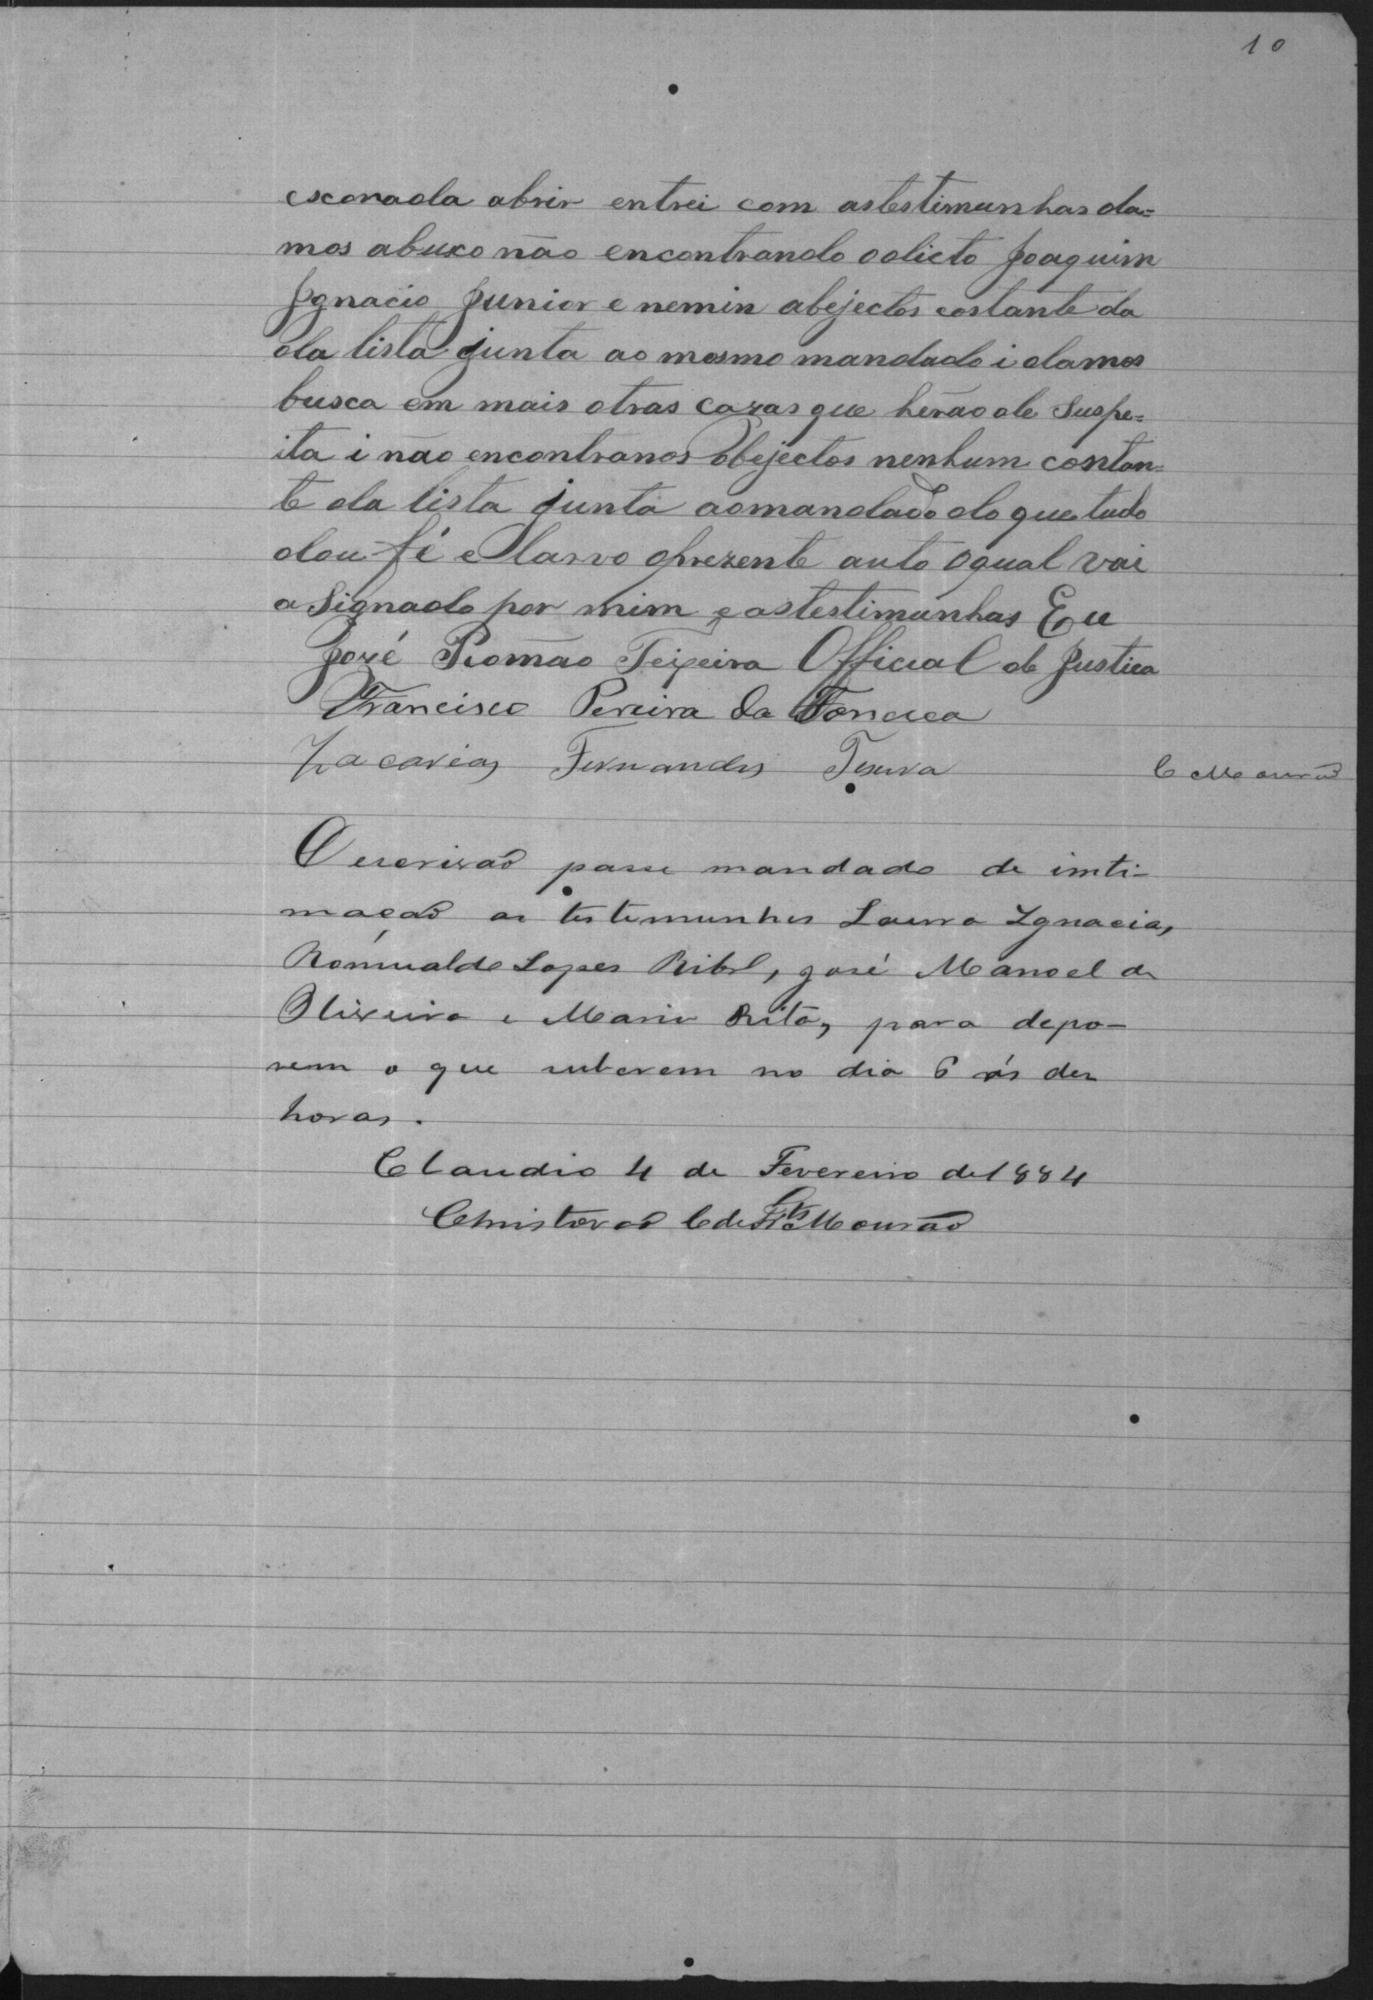 10
esconada abrir entrei com astestimunhas da=
mos abuxo não encontrando odicto Joaquim
Ignacio Junior e nemin abejectos costante da
da lista junta ao mesmo mandado i damos
busca em mais otras cazas que herão de suspe=
ita i não encontranos obejectos nenhum contan=
te da lista junta aomandado do que tudo
dou fé e larvo oprezente auto oqual vai
a Signado por mim e astestimunhas Eu
Jozé Romão Teixeira Official de Justica
Francisco Pereira da Fonceca
Zacarias Fernandes
C Mourão
O escrivaõ passe mandado de inti-
maçaõ as testemunhas Laura Ignacia,
Romualdo Lopes, José Manoel de
Oliveira e Maria Rita, para depo-
rem o que suberem no dia 6 ás dez
horas.
Claudio 4 de Fevereiro de 1884
Christovaõ C de Mourão